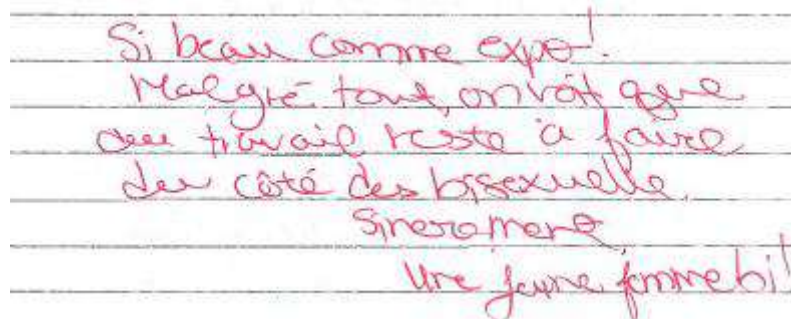 Si beau comme expo!
Malgré tout, on voit que
du travail reste à faire
du côté des bisexuelle.
Sincerement
Une jeune femme bi!